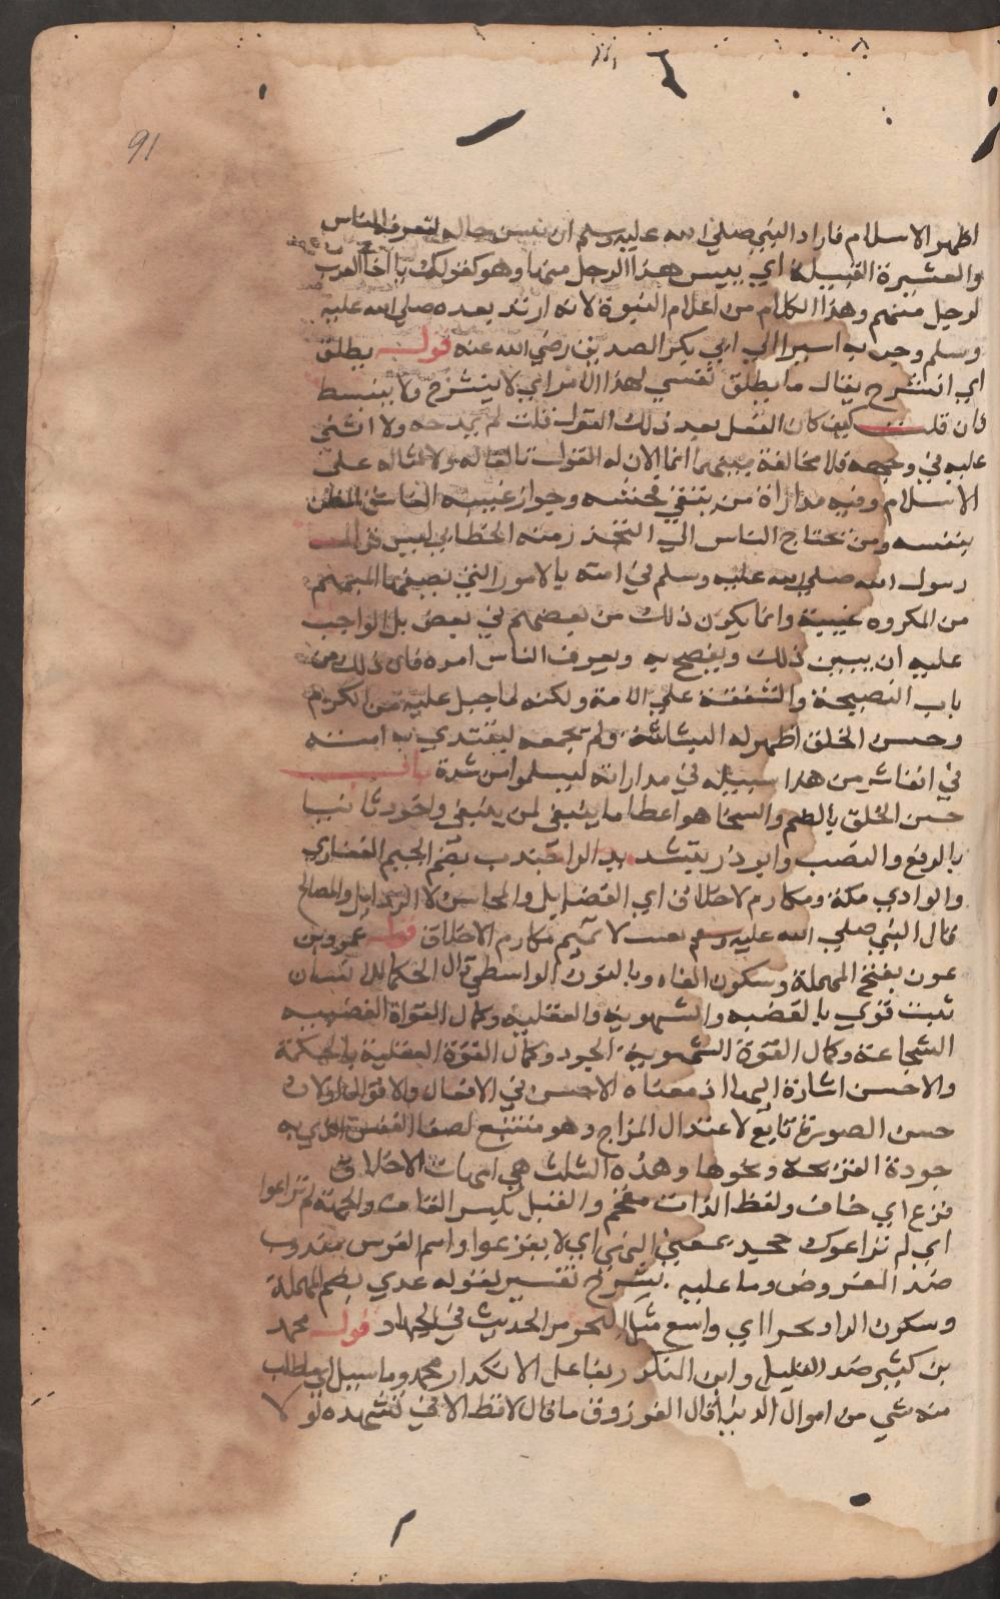 91
اظهر الاسلام فاراد النبي صلى الله عليه وسلم ان يبين حاله لتعرفه الناس
والعشيرة القبيلة اي بيس هذا الرجل منها وهو كقولك يا اخا العرب
لرجل منهم وهذا الكلام من اعلام النبوة لانه ارتد بعده صلى الله عليه
وسلم وجي به اسيرا الي ابي بكر الصديق رضي الله عنه قوله يطلق
اي انشرح يقال ما يطلق نفسي لهذا الامر اي لا ينشرح ولا ينبسط
فان قلت كيف كان الفعل بعد ذلك القول قلت لم يمدحه ولا اثنى
عليه في وجهه فلا مخالفة بينهما انما الان له القول تالفا له ولامثاله على
الاسلام وفيه مداراة من يتقي فحشه وجواز غيبة الفاسق المعلن
بفسقه ومن يحتاج الناس الي التحذر منه الخطابي ليس قول
رسول الله صلى الله عليه وسلم في امته بالامور التي يضيفها اليهم
من المكروه غيبة وانما يكون ذلك من بعضهم في بعض بل الواجب
عليه ان يبين ذلك ويفصح به ويعرف الناس امره فان ذلك من
باب النصيحة والشفقة علي الامة ولكنه لما جبل عليه من الكرم
وحسن الخلق اظهر له البشاشة ولم يجبهه ليقتدي به امته
في اتقا شر من هذا سبيله في مداراته ليسلموا من شدة باب
حسن الخلق بالضم والسخا هو اعطا ما ينبغي لمن ينبغي واجود ثانيا
بالرفع والنصب وابو ذر بتشديد الرا جندب بضم الجيم الغفاري
والوادي مكة ومكارم الاخلاق اي الفضايل والمحاسن لا الرذايل والمصالح
قال النبي صلى الله عليه وسلم بعثت لاتمم مكارم الاخلاق قوله عمرو بن
عون بفتح المهملة وسكون الواو وبالنون الواسطي قال الحكما للانسان
ثلث قوي الغضبية والشهوية والعقلية وكمال القوة الغضبية
الشجاعة وكمال القوة الشهوية الجود وكمال القوة العقلية الحكمة
والاحسن اشارة اليها اذ معناه الاحسن في الافعال والاقوال ولان
حسن الصورة تابع لاعتدال المزاج وهو مستتبع لصفا النفس الذي به
جودة القريحة ونحوها وهذه الثلث هي امهات الاخلاق
فزع اي خاف ولفظ الذات مقحم والقبل بكسر القاف والجهة لم تراعوا
اي لم تراعوك جحد بمعنى النهي اي لا تفزعوا واسم الفرس مندوب
ضد المفروض وما عليه سرج تفسير لقوله عري بضم المهملة
وسكون الرا وبحرا اي واسع مثل البحر مر الحديث في الجهاد قوله محمد
بن كثير ضد القليل وابن المنكدر بفاعل الانكدار محمد وما سيل اي ما طلب
منه شي من اموال الدنيا قال الفرزدق ما قال لا قط الا في تشهده لولا